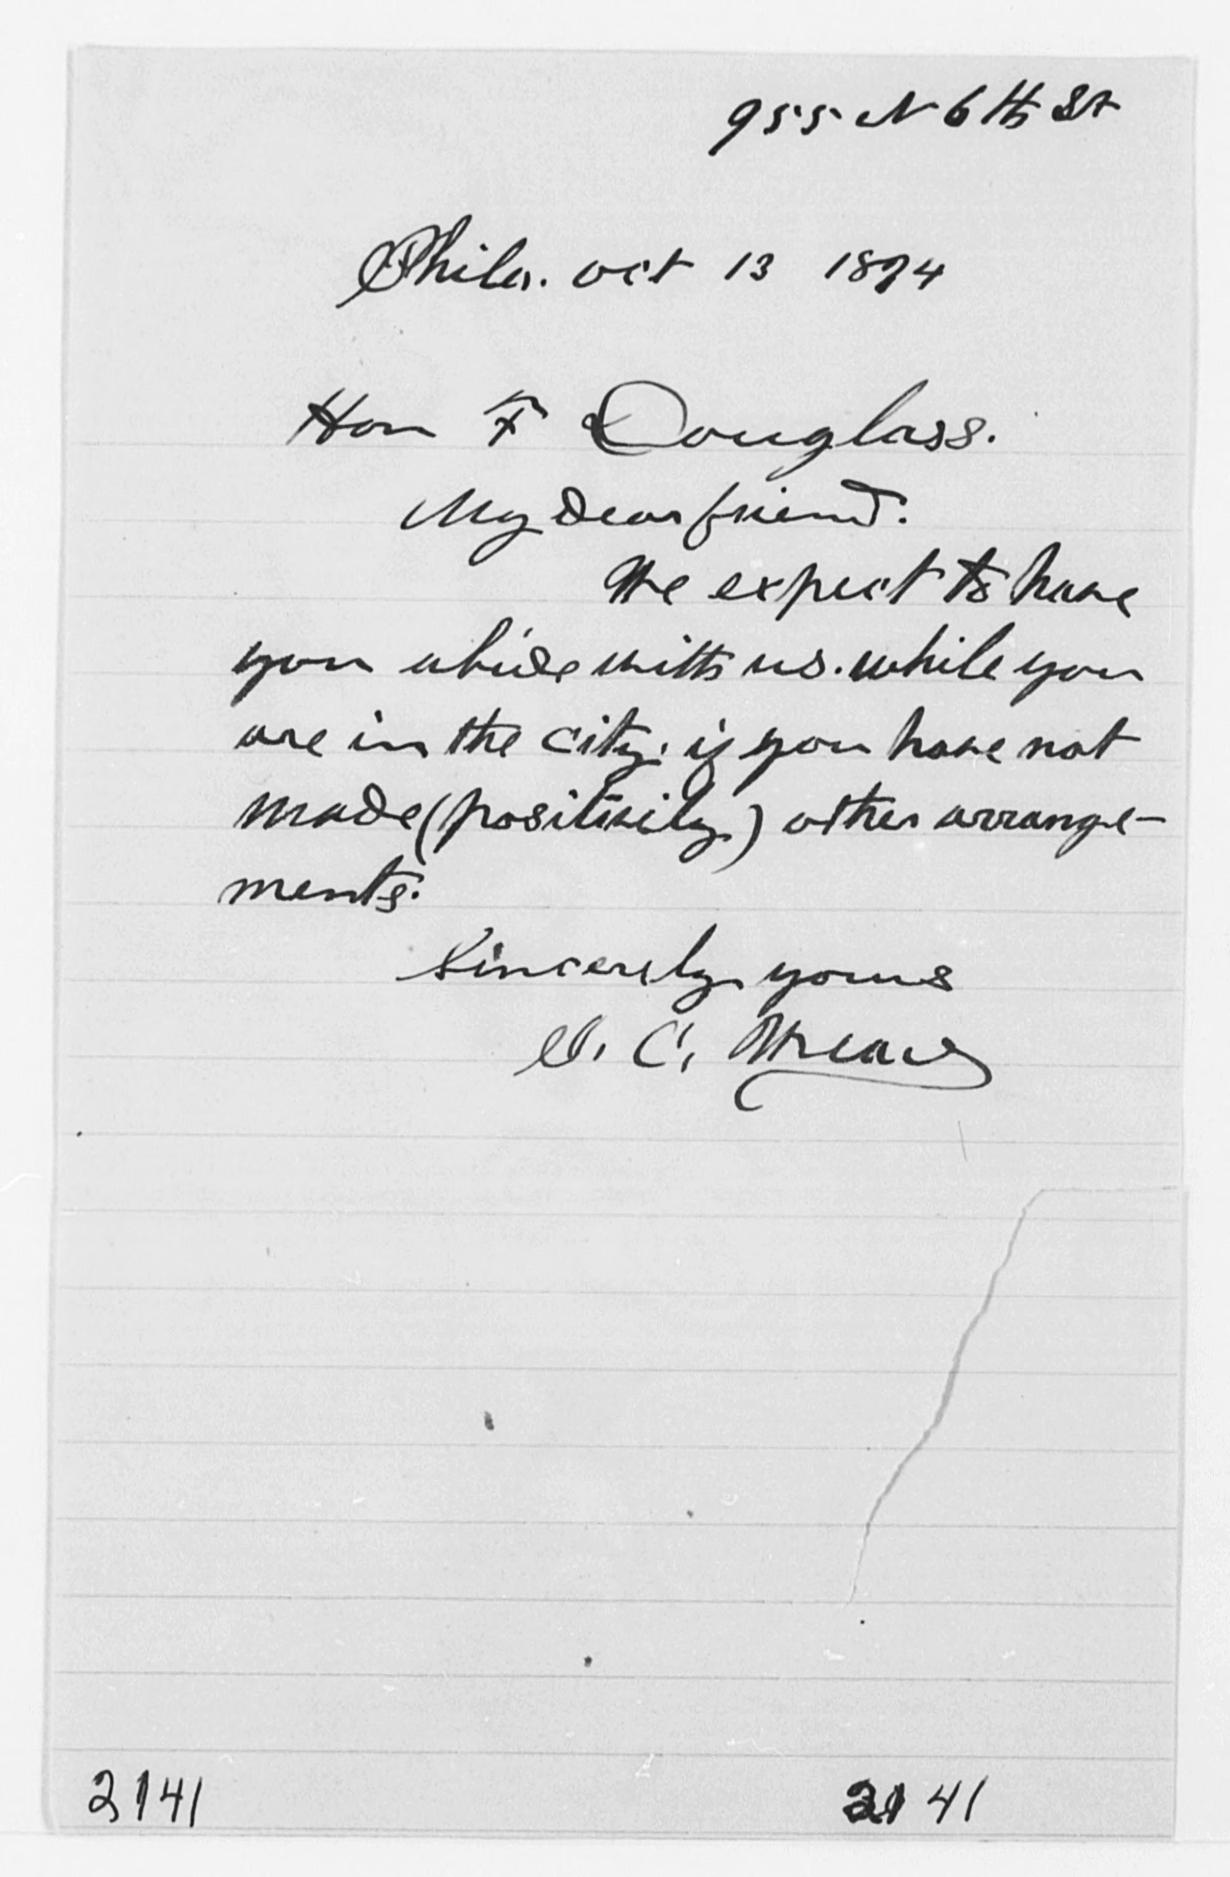 955 N 6th St
Phila. oct 13 1874
Hon F Douglass.
My Dear friend.
We expect to have
you abide with us. while you
are in the city. if you have not
made (positively) other arrange-
ments.
Sincerely yours
C.
2141
2141